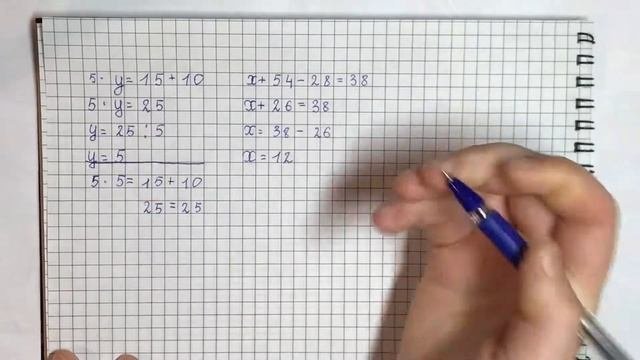 5 · y = 15 + 10
5 · y = 25
y = 25 : 5
y = 5
5 · 5 = 15 + 10
25 = 25
x + 54 - 28 = 38
x + 26 = 38
x = 38 - 26
x = 12